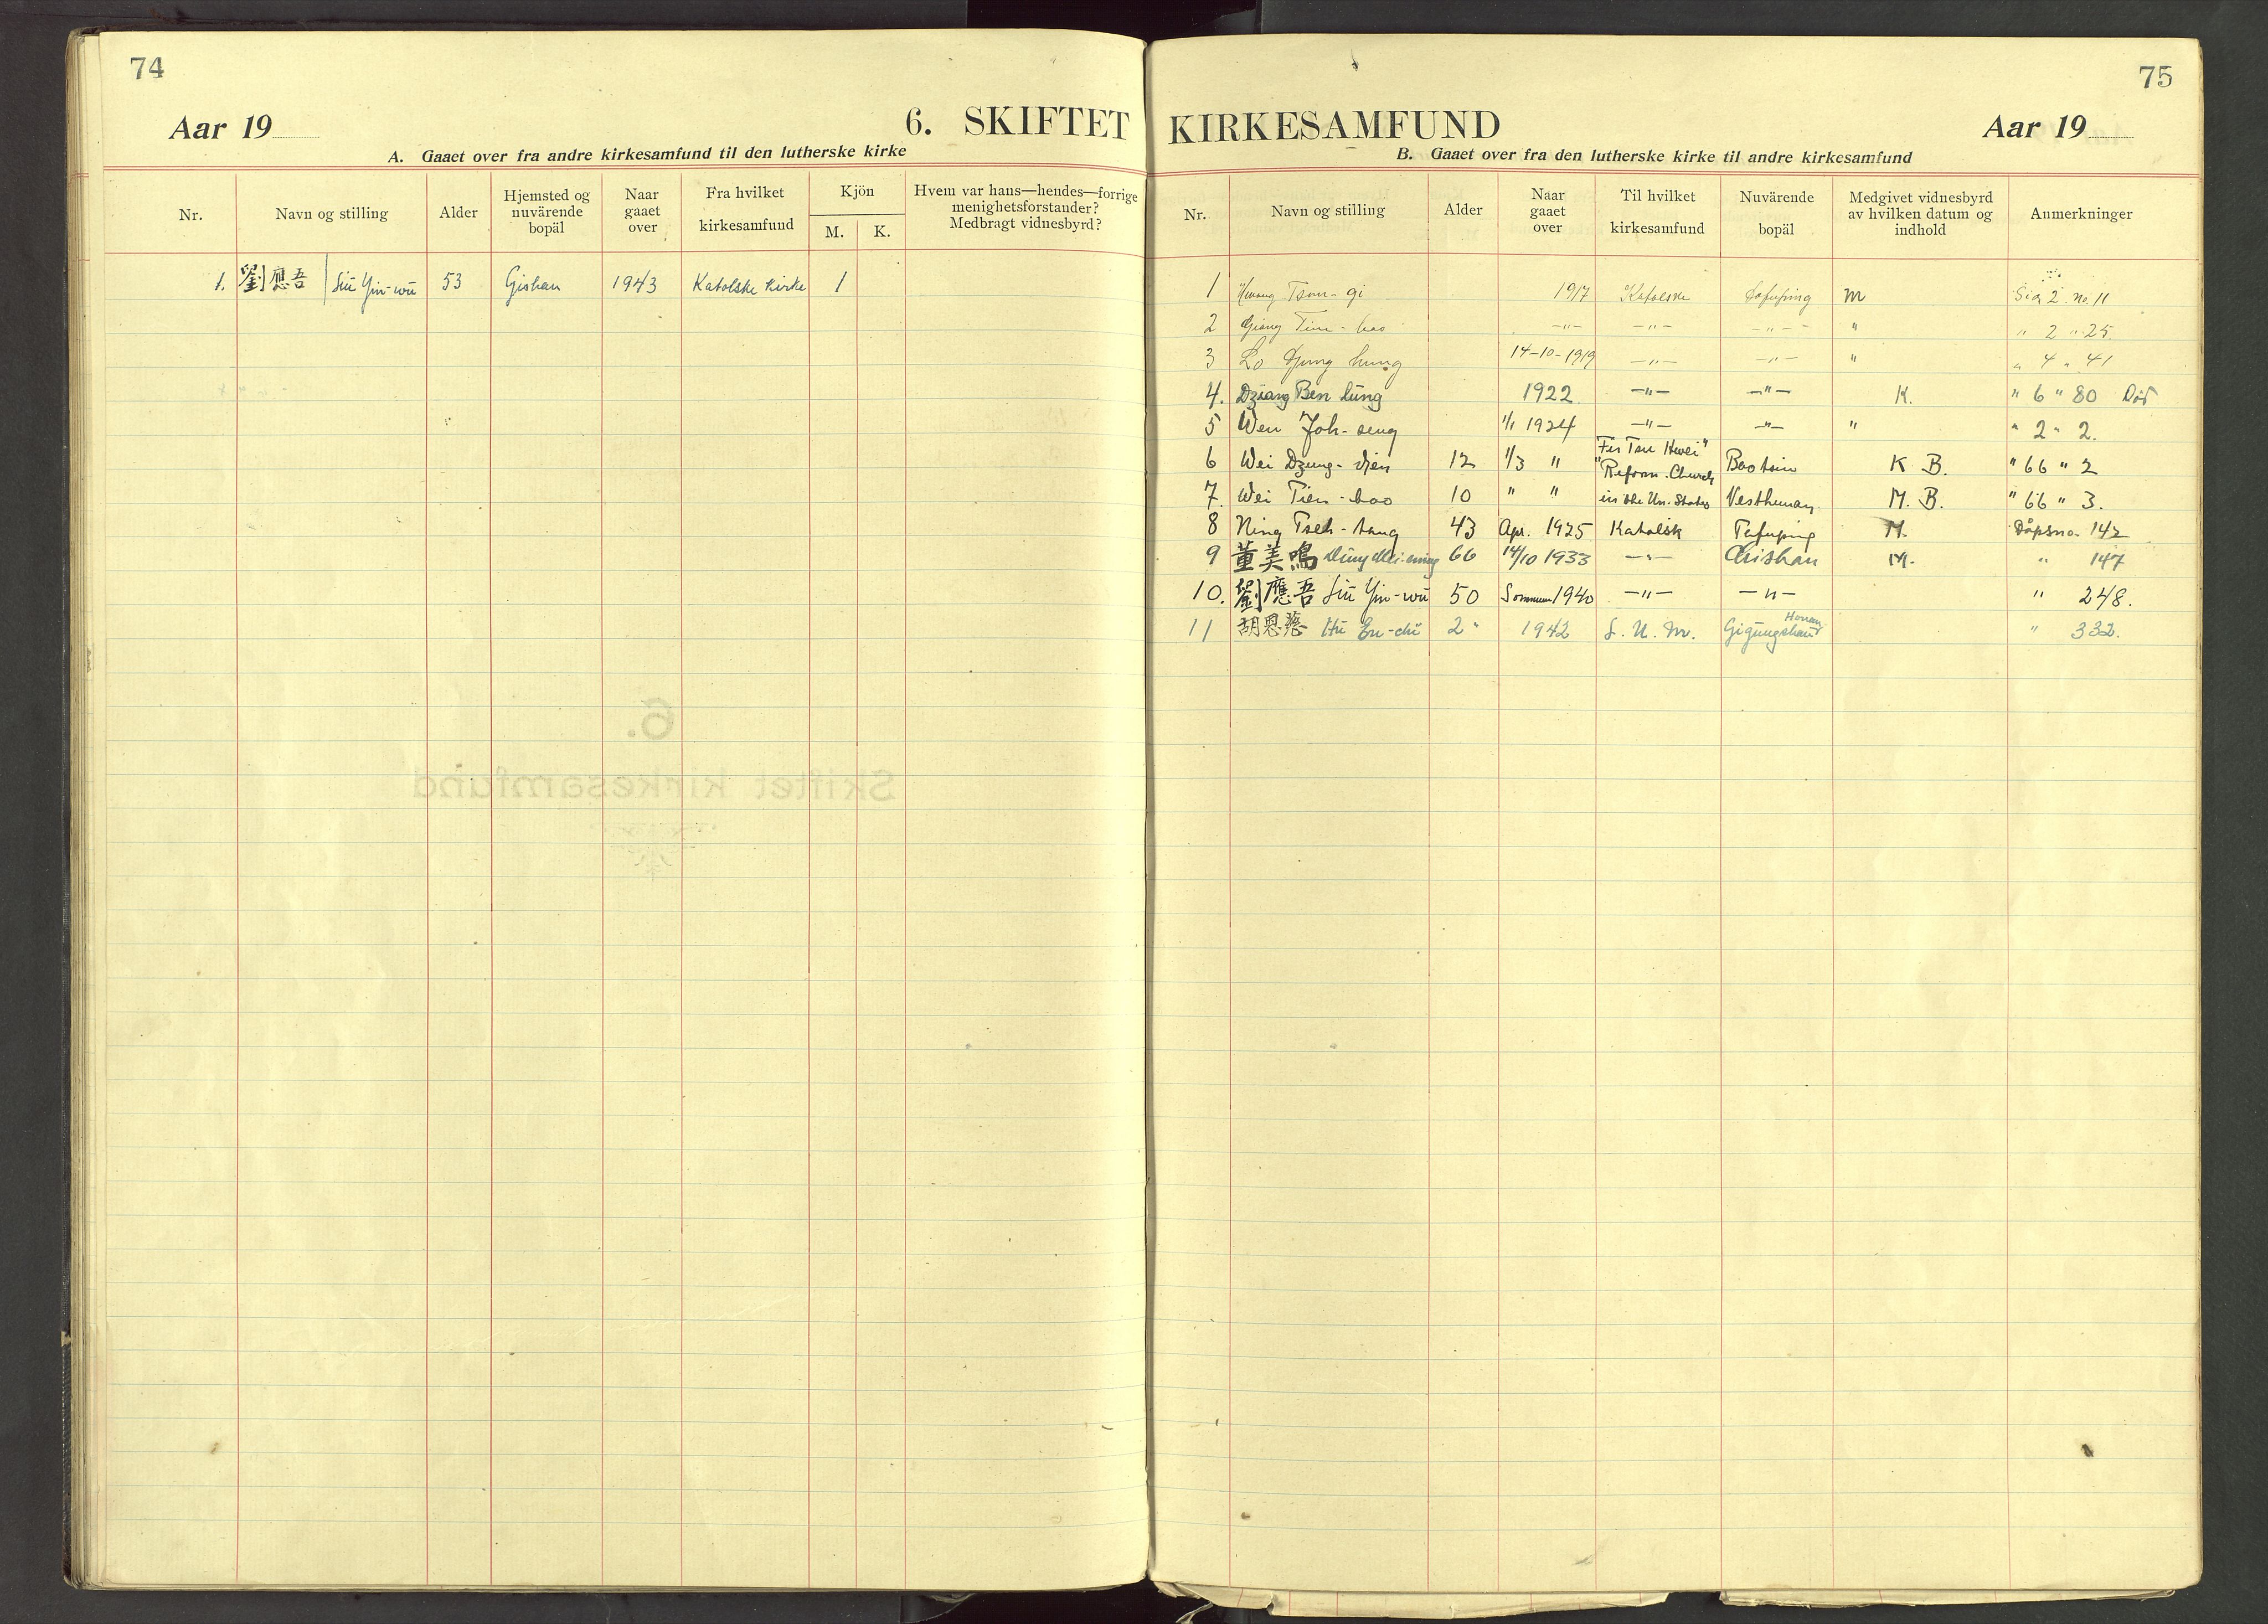 74
Aar 19
6. SKIFTET
A. Gaaet over fra andre kirkesamfund til den lutherske kirke
Nr. Navn og stilling Alder Hjemsted og nuvärende bopäl Naar gaaet over Fra hvilket kirkesamfund Kjön M. K. Hvem var hans—hendes—forrige menighetsforstander? Medbragt vidnesbyrd?
1. 劉應吾 Liu Yin-wu 53 Gishan 1943 Katolske Kirke 1
75
KIRKESAMFUND
Aar 19
B. Gaaet over fra den lutherske kirke til andre kirkesamfund
Nr. Navn og stilling Alder Naar gaaet over Til hvilket kirkesamfund Nuvärende bopäl Medgivet vidnesbyrd av hvilken datum og indhold Anmerkninger
1 Hwang Tsun-gi 1917 Katolske Tafuping M Sid 2 no. 11
2 Giang Tin-bao —"— —"— —"— " " 2 " 25
3 Lo Gung hung 14-10-1919 —"— —"— " " 4 " 41
4. Dziang Ben lung 1922 —"— —"— K. " 6 " 80 Död
5 Wen Joh-seng 1/1 1924 —"— —"— " " 2 " 2.
6 Wei Dzung-dien 12 1/3 " "Fu Tsu Hwei" "Reform. Church Baotsin K B. " 66 " 2
7. Wei Tien-bao 10 " " in the Un. States Vesthunan M. B. " 66 " 3.
8 Ning Tseh-tang 43 Apr. 1925 Katolsk Tafuping M. Dåpsno. 142
9 董美鳴 Dung Mei-ming 66 14/10 1933 —"— Chishan M. " 147
10. 劉應吾 Liu Yin-wu 50 Sommeren 1940 —"— —"— " 248.
11 胡恩慈 Hu En-chi 2 " 1942 L. U. M. Gigungshan Honan " 332.